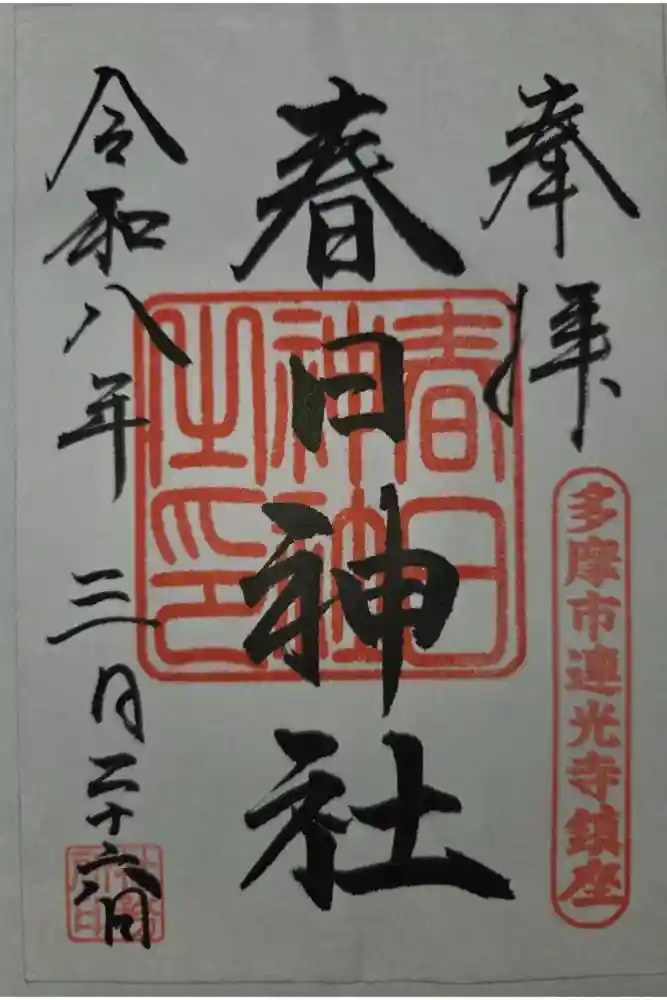 奉拝
多摩市連光寺鎮座
春日神社
春日神社之印
令和八年三月二十六日